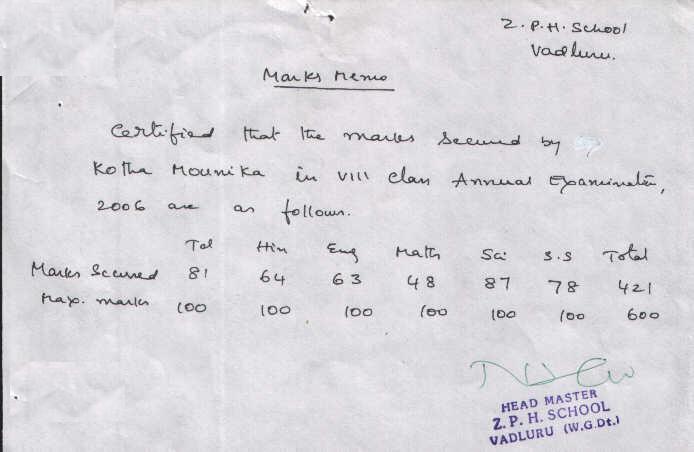 Z. P. H. School
Vadluru.
Marks Memo
Certified that the marks secured by
Kotha Mounika in VIII class Annual Examination,
2006 are as follows.
Tel Hin Eng Maths Sci S.S Total
Marks Secured 81 64 63 48 87 78 421
Max. marks 100 100 100 100 100 100 600
HEAD MASTER
Z. P. H. SCHOOL
VADLURU (W.G.Dt.)